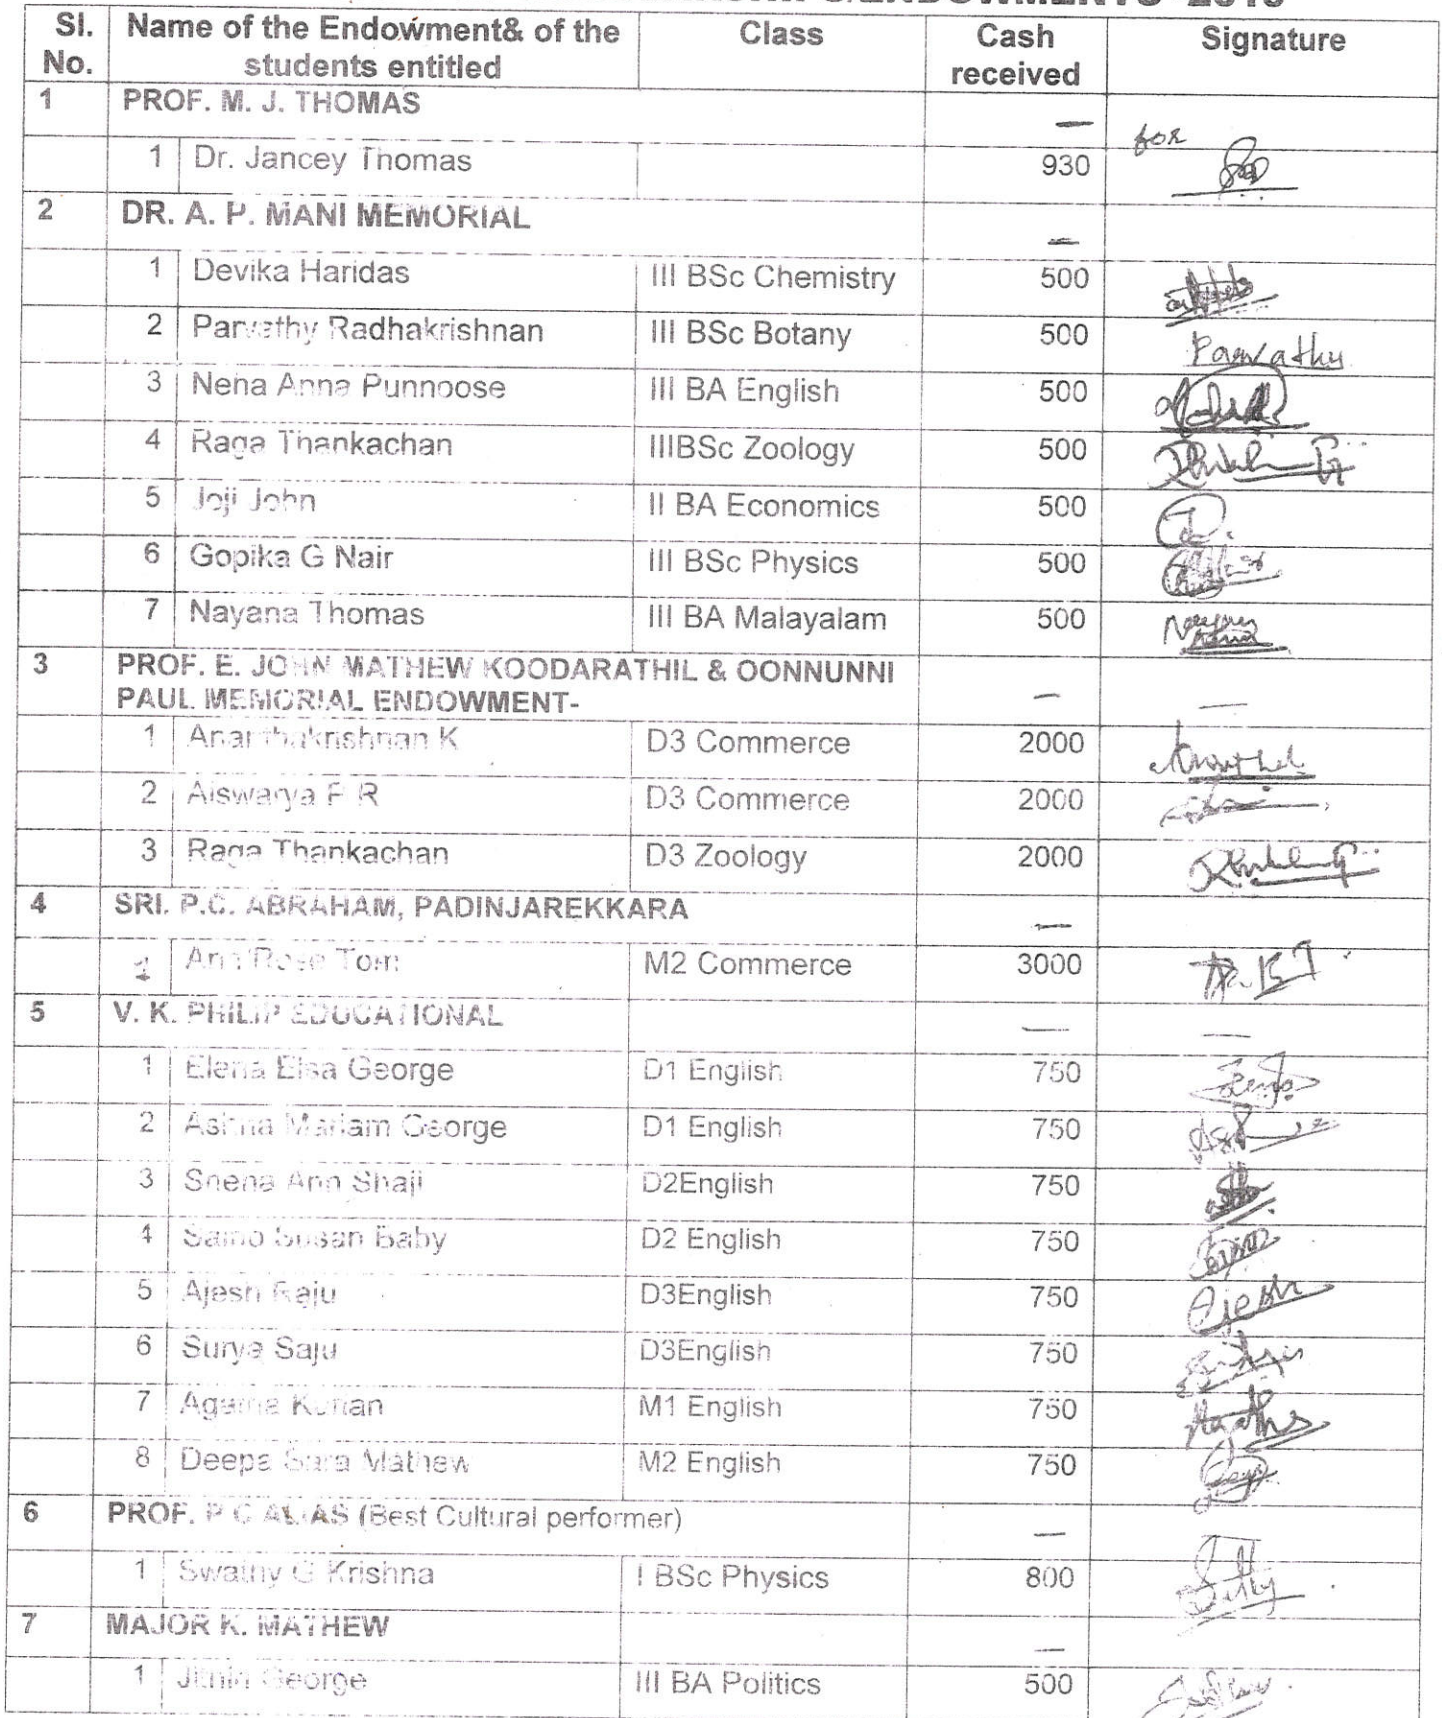 Sl. No. Name of the Endowment& of the students entitled Class Cash received Signature
1 PROF. M. J. THOMAS —
1 Dr. Jancey Thomas 930 for
2 DR. A. P. MANI MEMORIAL —
1 Devika Haridas III BSc Chemistry 500
2 Parvathy Radhakrishnan III BSc Botany 500 Parvathy
3 Neha Anna Punnoose III BA English 500
4 Raga Thankachan IIIBSc Zoology 500
5 Joji John II BA Economics 500
6 Gopika G Nair III BSc Physics 500
7 Nayana Thomas III BA Malayalam 500
3 PROF. E. JOHN MATHEW KOODARATHIL & OONNUNNI
PAUL MEMORIAL ENDOWMENT- — —
1 Ananthakrishnan K D3 Commerce 2000
2 Aiswarya P R D3 Commerce 2000
3 Raga Thankachan D3 Zoology 2000
4 SRI. P.C. ABRAHAM, PADINJAREKKARA —
1 Ann Rose Tom M2 Commerce 3000
5 V. K. PHILIP EDUCATIONAL — —
1 Elena Elsa George D1 English 750
2 Ashna Mariam George D1 English 750
3 Sneha Ann Shaji D2English 750
4 Susan Baby D2 English 750
5 Ajesh Raju D3English 750 Ajesh
6 Surya Saju D3English 750
7 M1 English 750
8 Deepa Sara Mathew M2 English 750
6 PROF. P C ALIAS (Best Cultural performer) —
1 Swathy G Krishna I BSc Physics 800
7 MAJOR K. MATHEW —
1 Jithin George III BA Politics 500